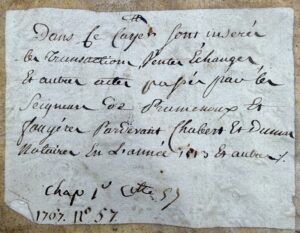 Dans Ce Cayer Sont inserée
les Transactions, Ventes Échanges
Et autres actes passés par les
Seigneur de Prumenoux Et
fougére Pardevant Chabert Et Dumas
Notaires En L'année Et autres
Chap 1er Cotte
1767. N° 57